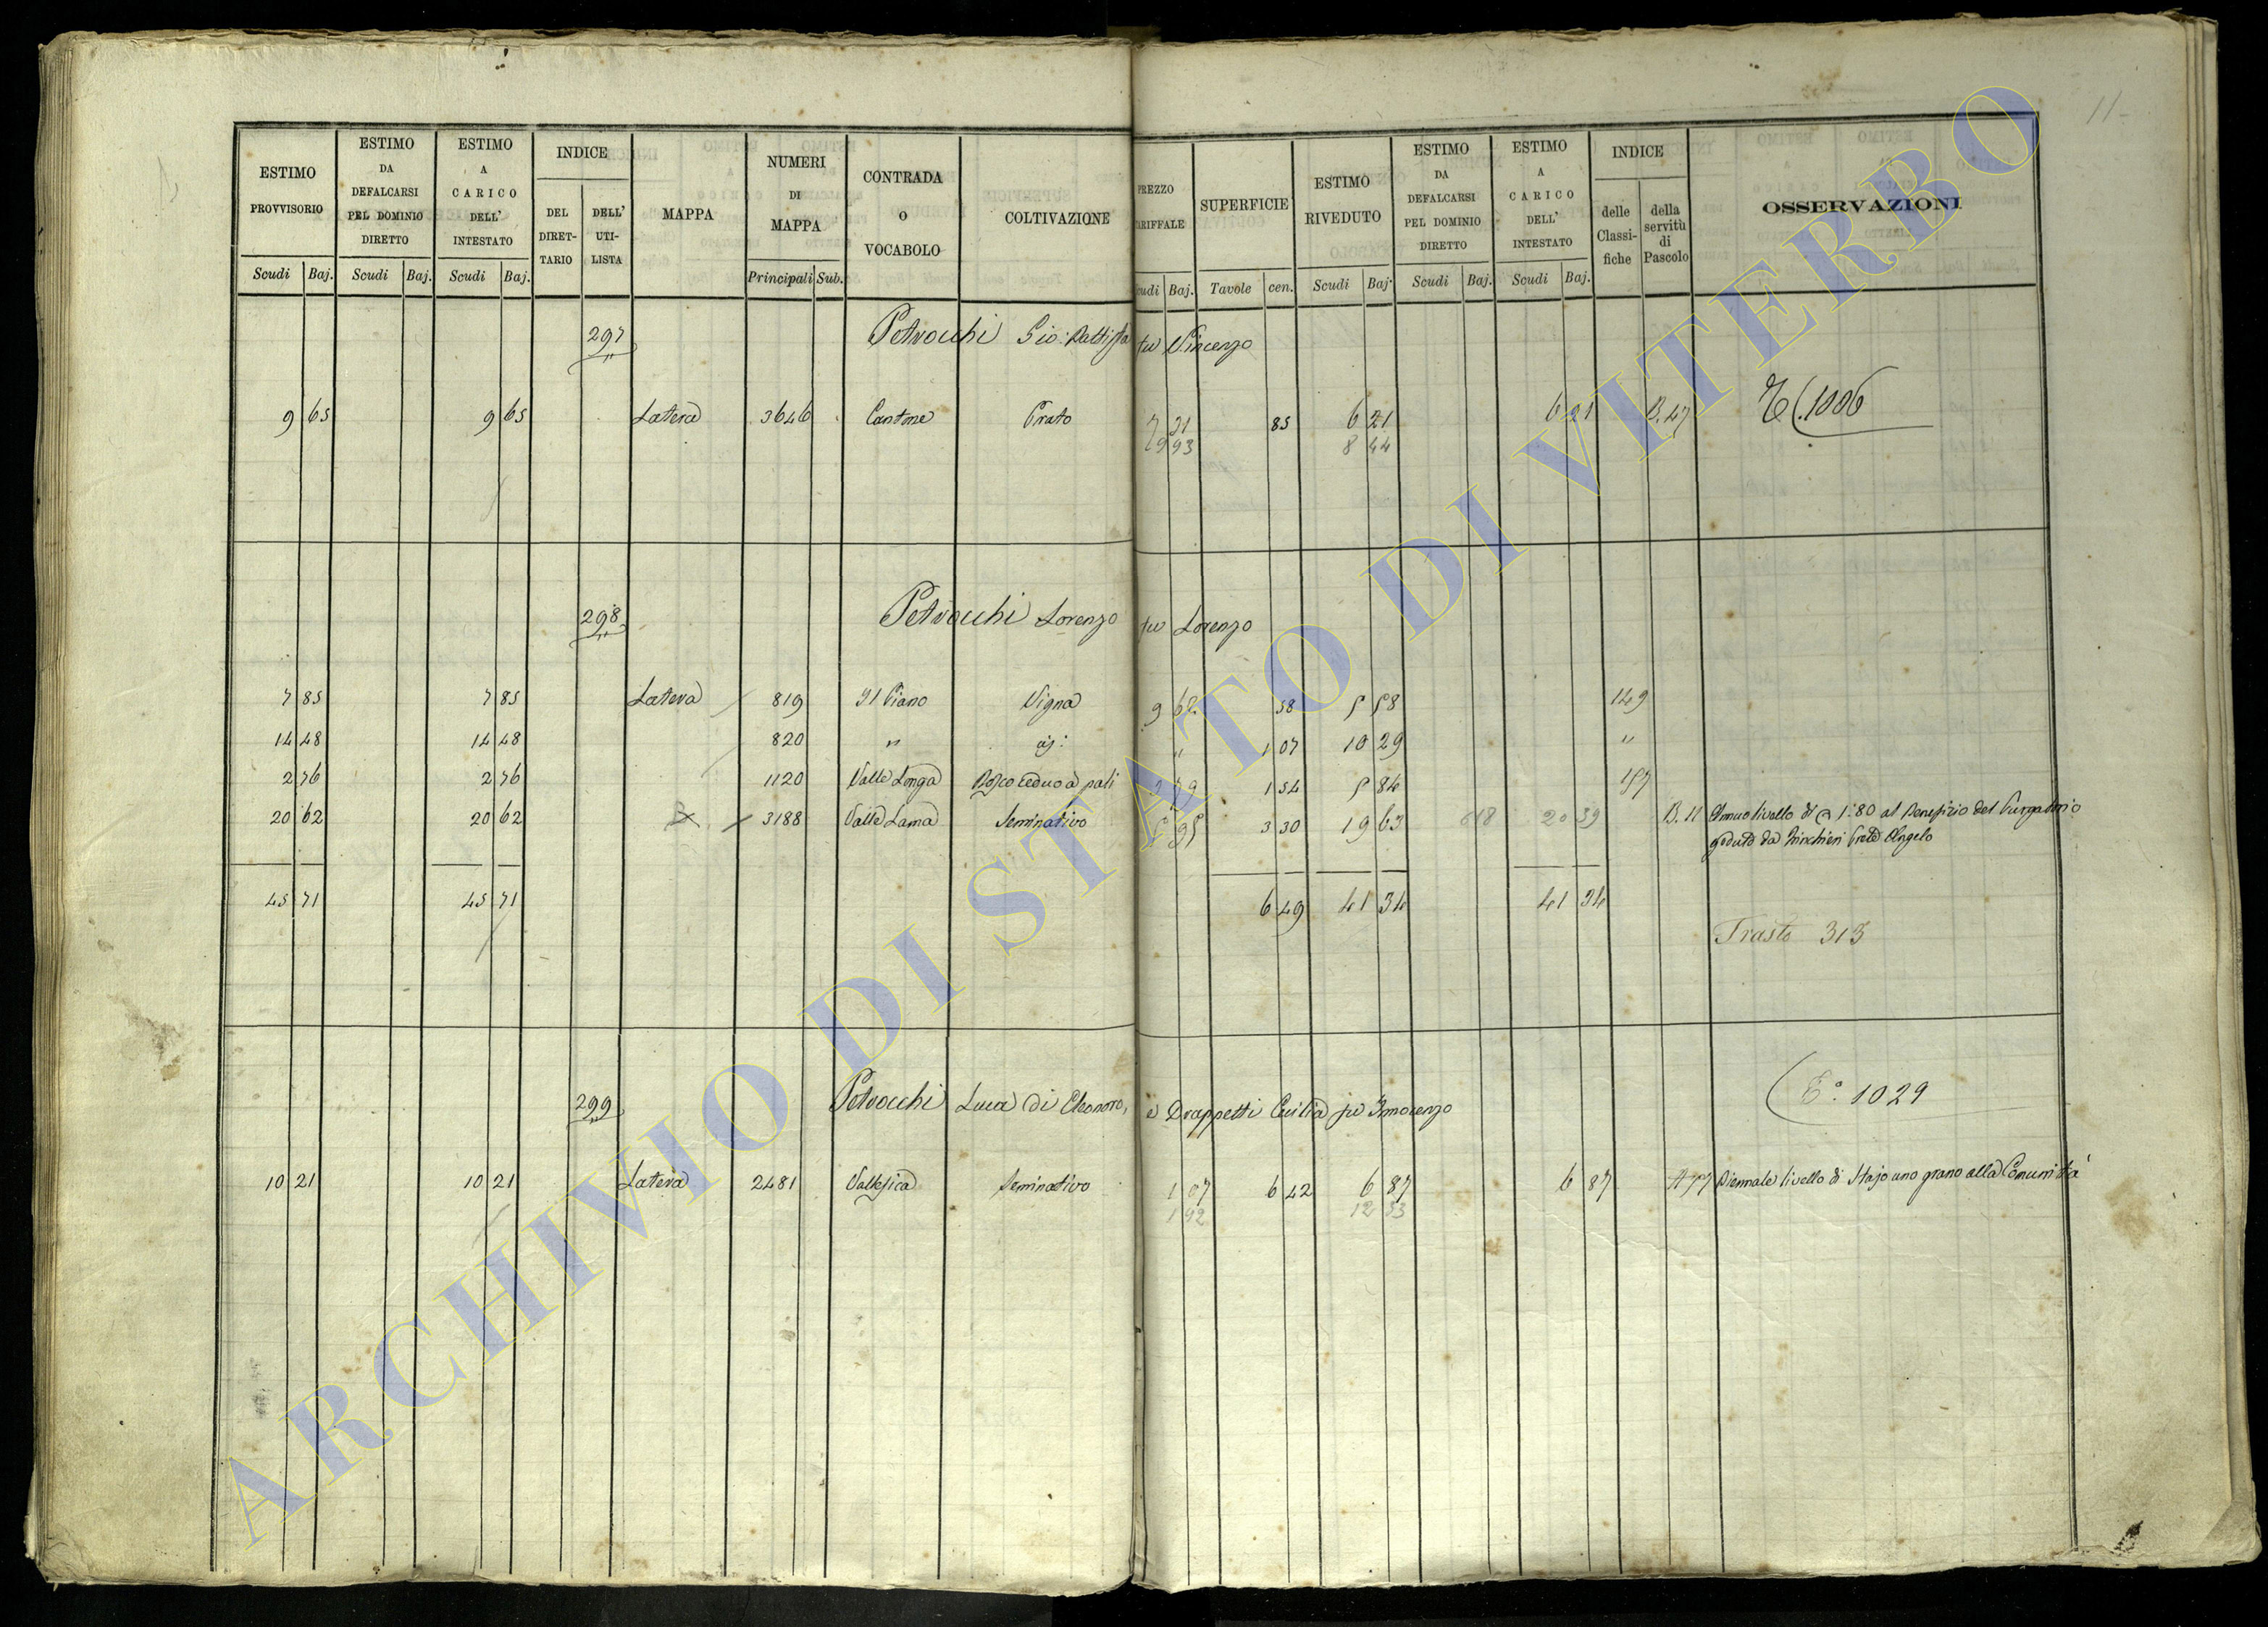 11
ESTIMO PROVVISORIO
ESTIMO DA DEFALCARSI PEL DOMINIO DIRETTO
ESTIMO A CARICO DELL' INTESTATO
INDICE
DEL DIRET-TARIO
DELL' UTI-LISTA
MAPPA
NUMERI DI MAPPA
CONTRADA O VOCABOLO
COLTIVAZIONE
PREZZO TARIFFALE
SUPERFICIE
ESTIMO RIVEDUTO
ESTIMO DA DEFALCARSI PEL DOMINIO DIRETTO
ESTIMO A CARICO DELL' INTESTATO
INDICE
delle Classi-fiche
della servitù di Pascolo
OSSERVAZIONI
Scudi Baj. Scudi Baj. Scudi Baj. Principali Sub. Scudi Baj. Tavole cen. Scudi Baj. Scudi Baj. Scudi Baj.
297 Petrocchi Gio: Battista fu Vincenzo
9 65 9 65 Latera 3646 Cantone Prato 7 31 85 6 21 6 21 B.47 1006
9 93 8 44
298 Petrocchi Lorenzo fu Lorenzo
7 85 7 85 Latera 819 Il Piano Vigna 9 62 58 5 58 149
14 48 14 48 820 " id: " 1 07 10 29 "
2 76 2 76 1120 Valle Longa Bosco ceduo a pali 1 54 5 84 157
20 62 20 62 3188 Valle Lama Seminativo 5 95 3 30 19 63 618 20 39 B. 11 Annuo livello di 1:80 al Benefizio del Purgatorio
goduto da Prete Angelo
45 71 45 71 6 49 41 34 41 34
Trasto 313
299 Petrocchi Luca di Eleonoro, e Drappetti Cecilia fu Innocenzo
E° 1029
10 21 10 21 Latera 2481 Vallesica Seminativo 1 07 6 42 6 87 6 87 Biennale livello di Stajo uno grano alla Comunità
1 92 12 33
ARCHIVIO DI STATO DI VITERBO